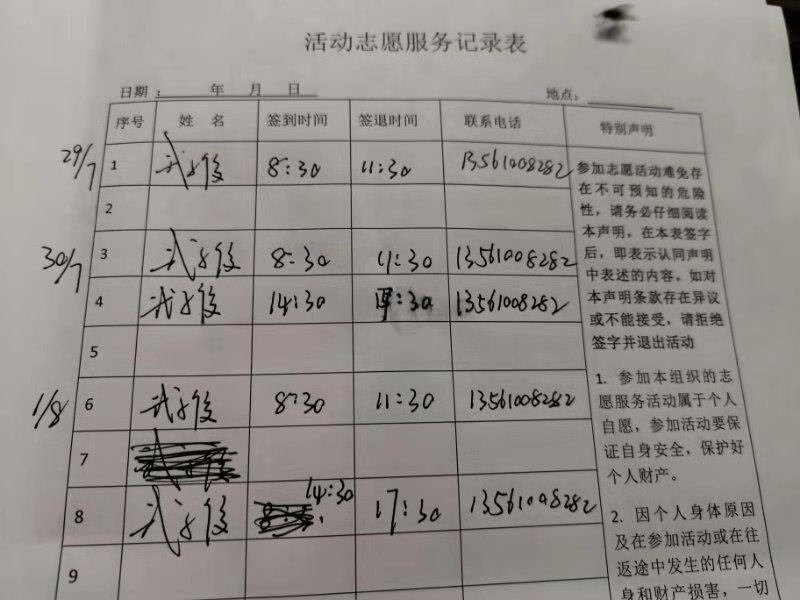 活动志愿服务记录表
日期： 年 月 日 地点：
序号 姓 名 签到时间 签退时间 联系电话 特别声明
29/7 1 武 俊 8:30 11:30 13561008282
2
30/7 3 武 俊 8:30 11:30 13561008282
4 武 俊 14:30 :30 13561008282
5
1/8 6 武 俊 8:30 11:30 13561008282
7
8 武 俊 14:30 17:30 13561008282
9
参加志愿活动难免存
在不可预知的危险
性，请务必仔细阅读
本声明，在本表签字
后，即表示认同声明
中表述的内容。如对
本声明条款存在异议
或不能接受，请拒绝
签字并退出活动
1. 参加本组织的志
愿服务活动属于个人
自愿，参加活动要保
证自身安全，保护好
个人财产。
2. 因个人身体原因
及在参加活动或在往
返途中发生的任何人
身和财产损害，一切